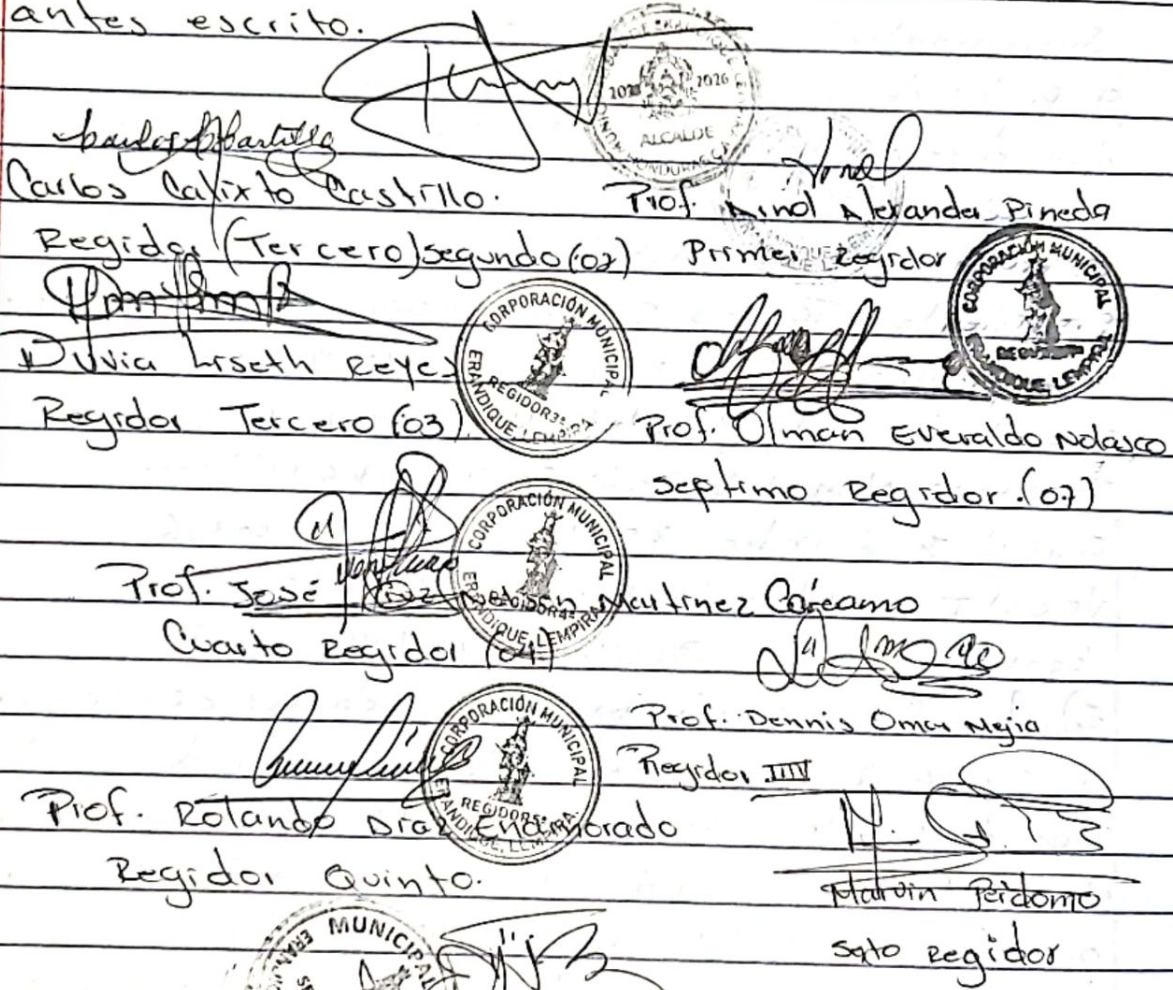 antes escrito.
2026
ALCALDE
HONDURAS C.A.
Carlos Calixto Castillo.
Prof. Arnol Alexander Pineda
Regidor (Tercero) segundo (02)
Primer Regidor
CORPORACIÓN MUNICIPAL
ERANDIQUE, LEMPIRA
Duvia Liseth Reyes
CORPORACIÓN MUNICIPAL
REGIDOR 3º
ERANDIQUE, LEMPIRA
Regidor Tercero (03)
Prof. Olman Everaldo Nolasco
septimo Regidor. (07)
CORPORACIÓN MUNICIPAL
REGIDOR 4º
ERANDIQUE, LEMPIRA
Prof. José Martinez Cárcamo
Cuarto Regidor (04)
Prof. Dennis Omar Mejia
Regidor IIIV
CORPORACIÓN MUNICIPAL
REGIDOR 5º
ERANDIQUE, LEMPIRA
Prof. Rolando Diaz Enamorado
Regidor Quinto.
Marvin Perdomo
sexto Regidor
MUNICIPAL